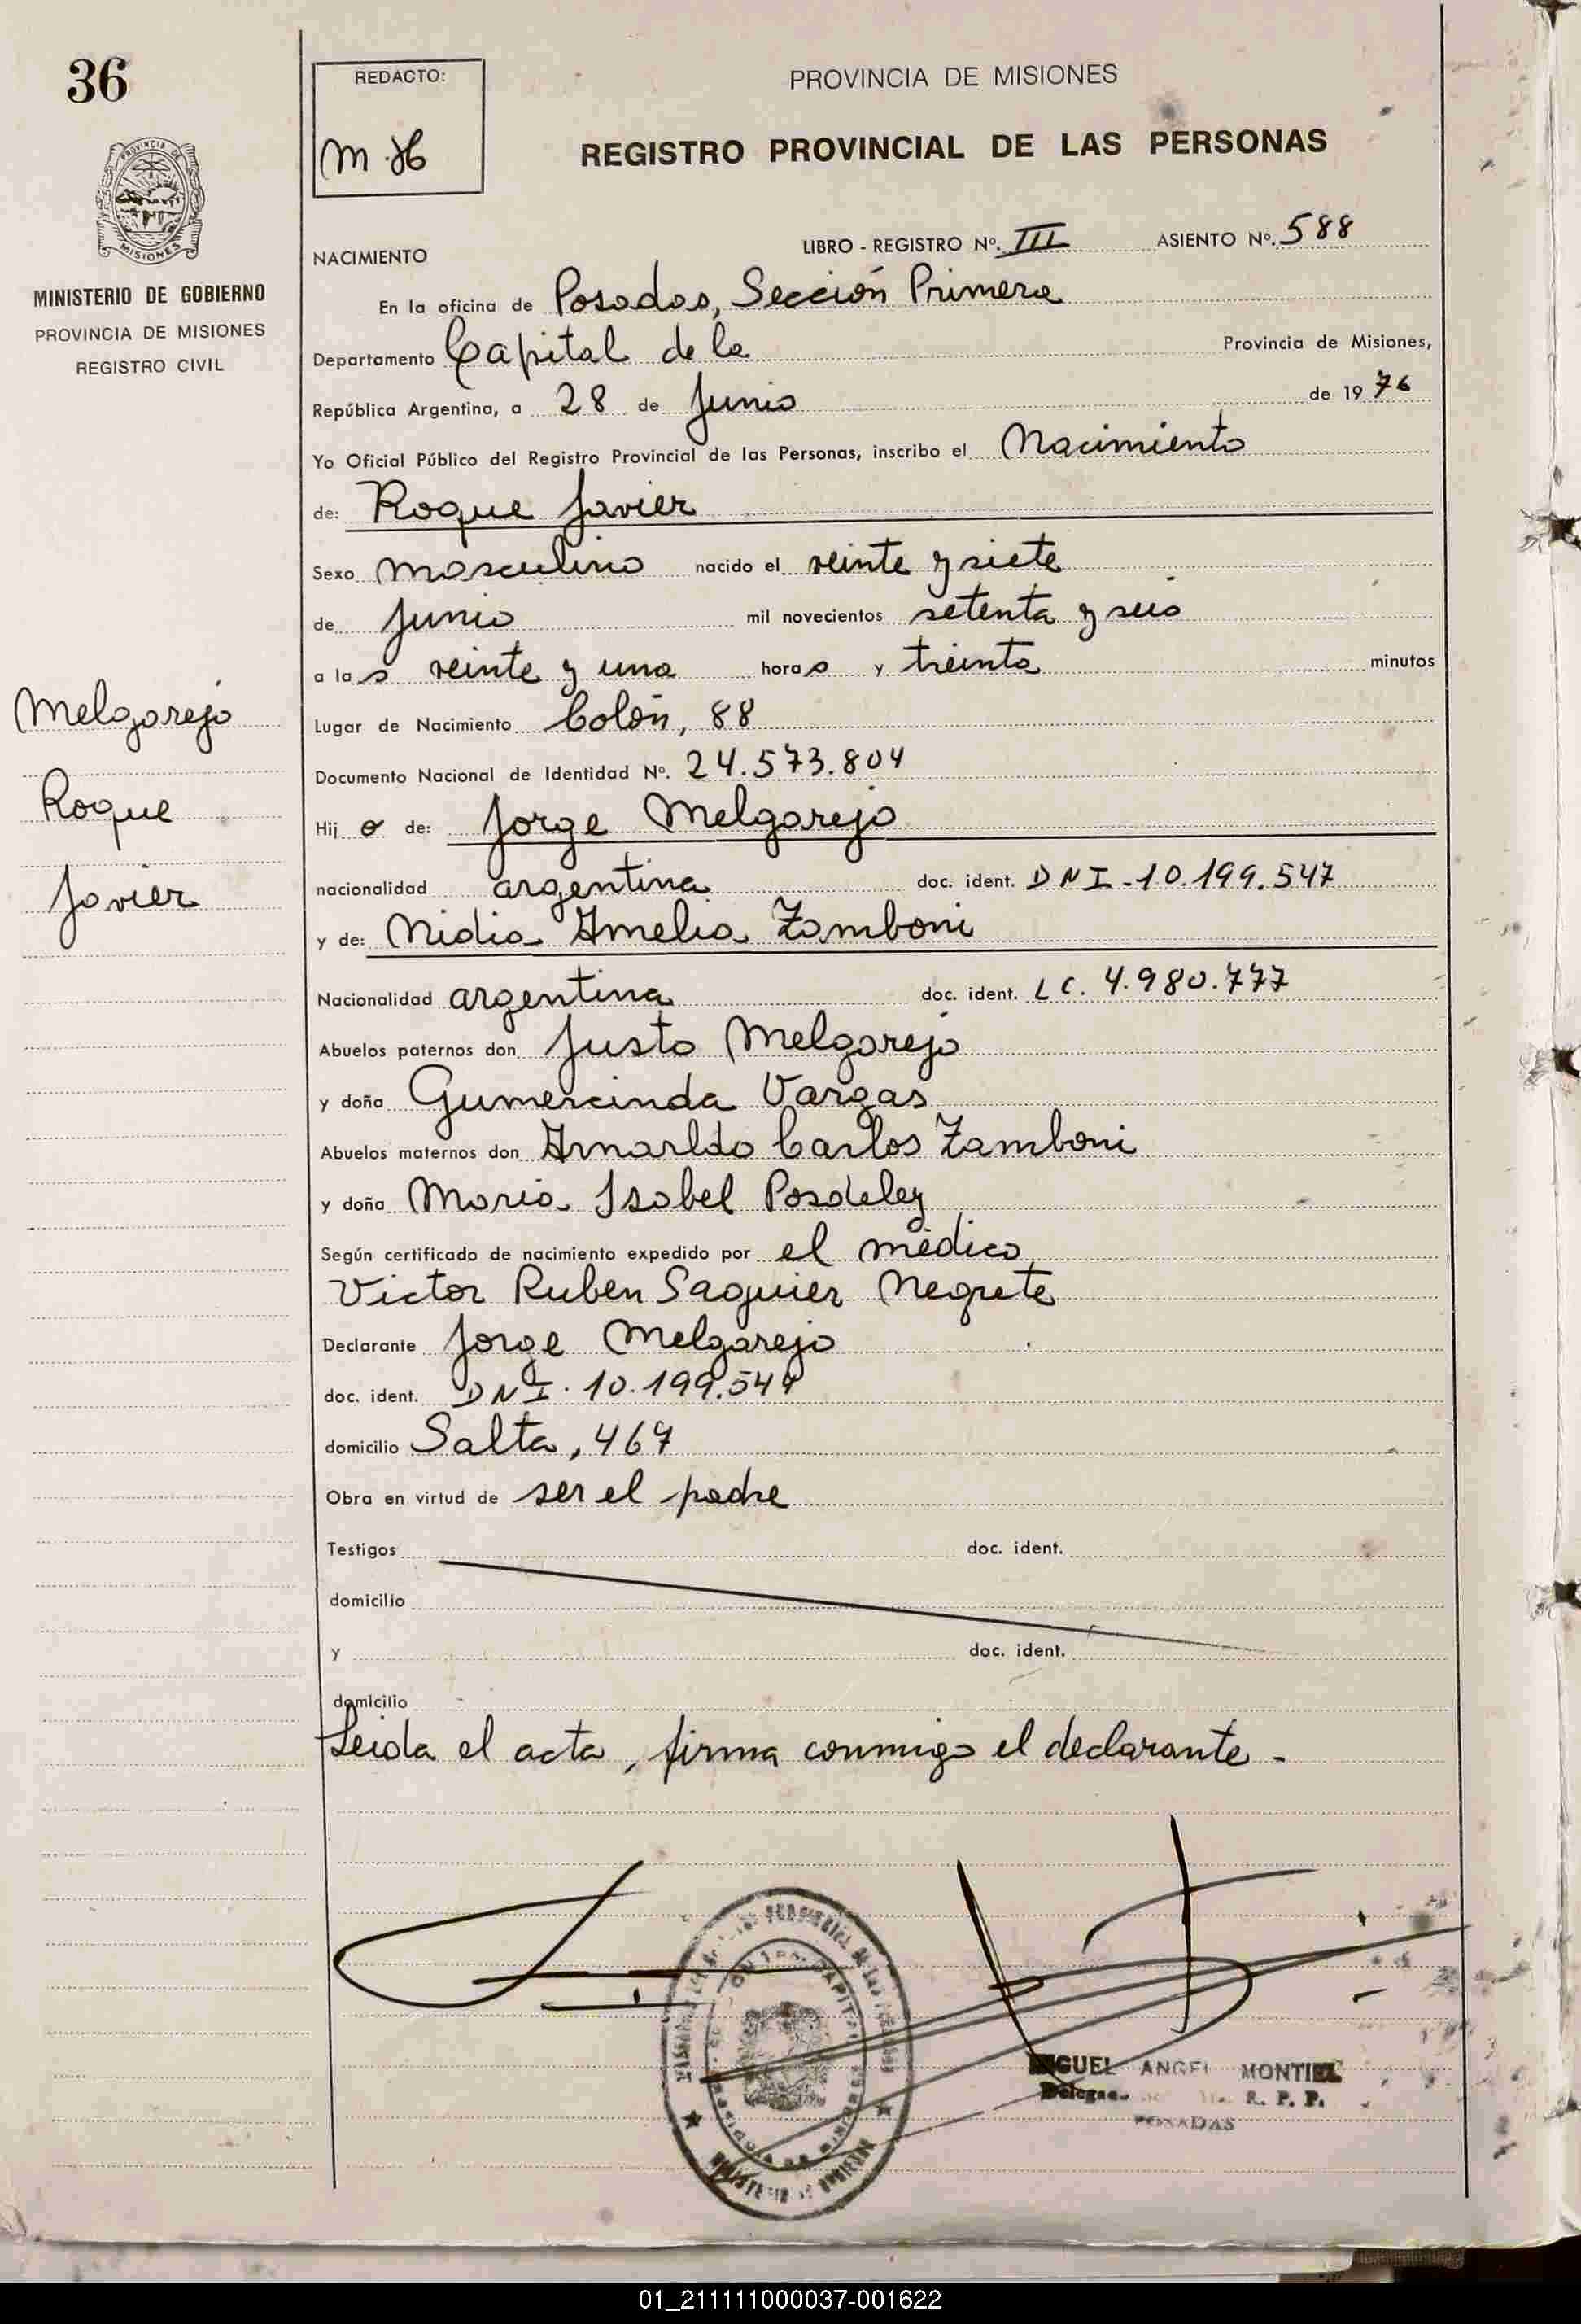 36
REDACTO:
M.H
PROVINCIA DE MISIONES
REGISTRO PROVINCIAL DE LAS PERSONAS
PROVINCIA DE
MISIONES
MINISTERIO DE GOBIERNO
PROVINCIA DE MISIONES
REGISTRO CIVIL
NACIMIENTO LIBRO - REGISTRO Nº. III ASIENTO Nº. 588
En la oficina de Posadas, Sección Primera
Departamento Capital de la Provincia de Misiones,
República Argentina, a 28 de Junio de 1976
Yo Oficial Público del Registro Provincial de las Personas, inscribo el Nacimiento
de: Roque Javier
Sexo masculino nacido el veinte y siete
de Junio mil novecientos setenta y seis
a las veinte y una horas y treinta minutos
Lugar de Nacimiento Colón, 88
Documento Nacional de Identidad Nº. 24.573.804
Hijo de: Jorge Melgarejo
nacionalidad argentina doc. ident. DNI-10.199.547
y de: Nidia Amelia Zamboni
Nacionalidad argentina doc. ident. LC. 4.980.777
Abuelos paternos don Justo Melgarejo
y doña Gumercinda Vargas
Abuelos maternos don Arnarldo Carlos Zamboni
y doña Maria Isabel Posdeley
Según certificado de nacimiento expedido por el médico
Victor Ruben Saguier Negrete
Declarante Jorge Melgarejo
doc. ident. DNI. 10.199.547
domicilio Salta, 467
Obra en virtud de ser el padre
Testigos doc. ident.
domicilio
y doc. ident.
domicilio
Leida el acta, firma conmigo el declarante.-
Melgarejo
Roque
Javier
MIGUEL ANGEL MONTIEL
R. P. P.
POSADAS
01_211111000037-001622